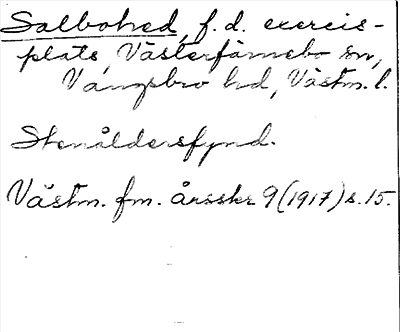 Salbohed, f.d. exercis-
plats, Västerfärnebo sn,
Vangsbro hd, Västm. l.
Stenåldersfynd.
Västm. fm. årsskr 9 (1917) s. 15.